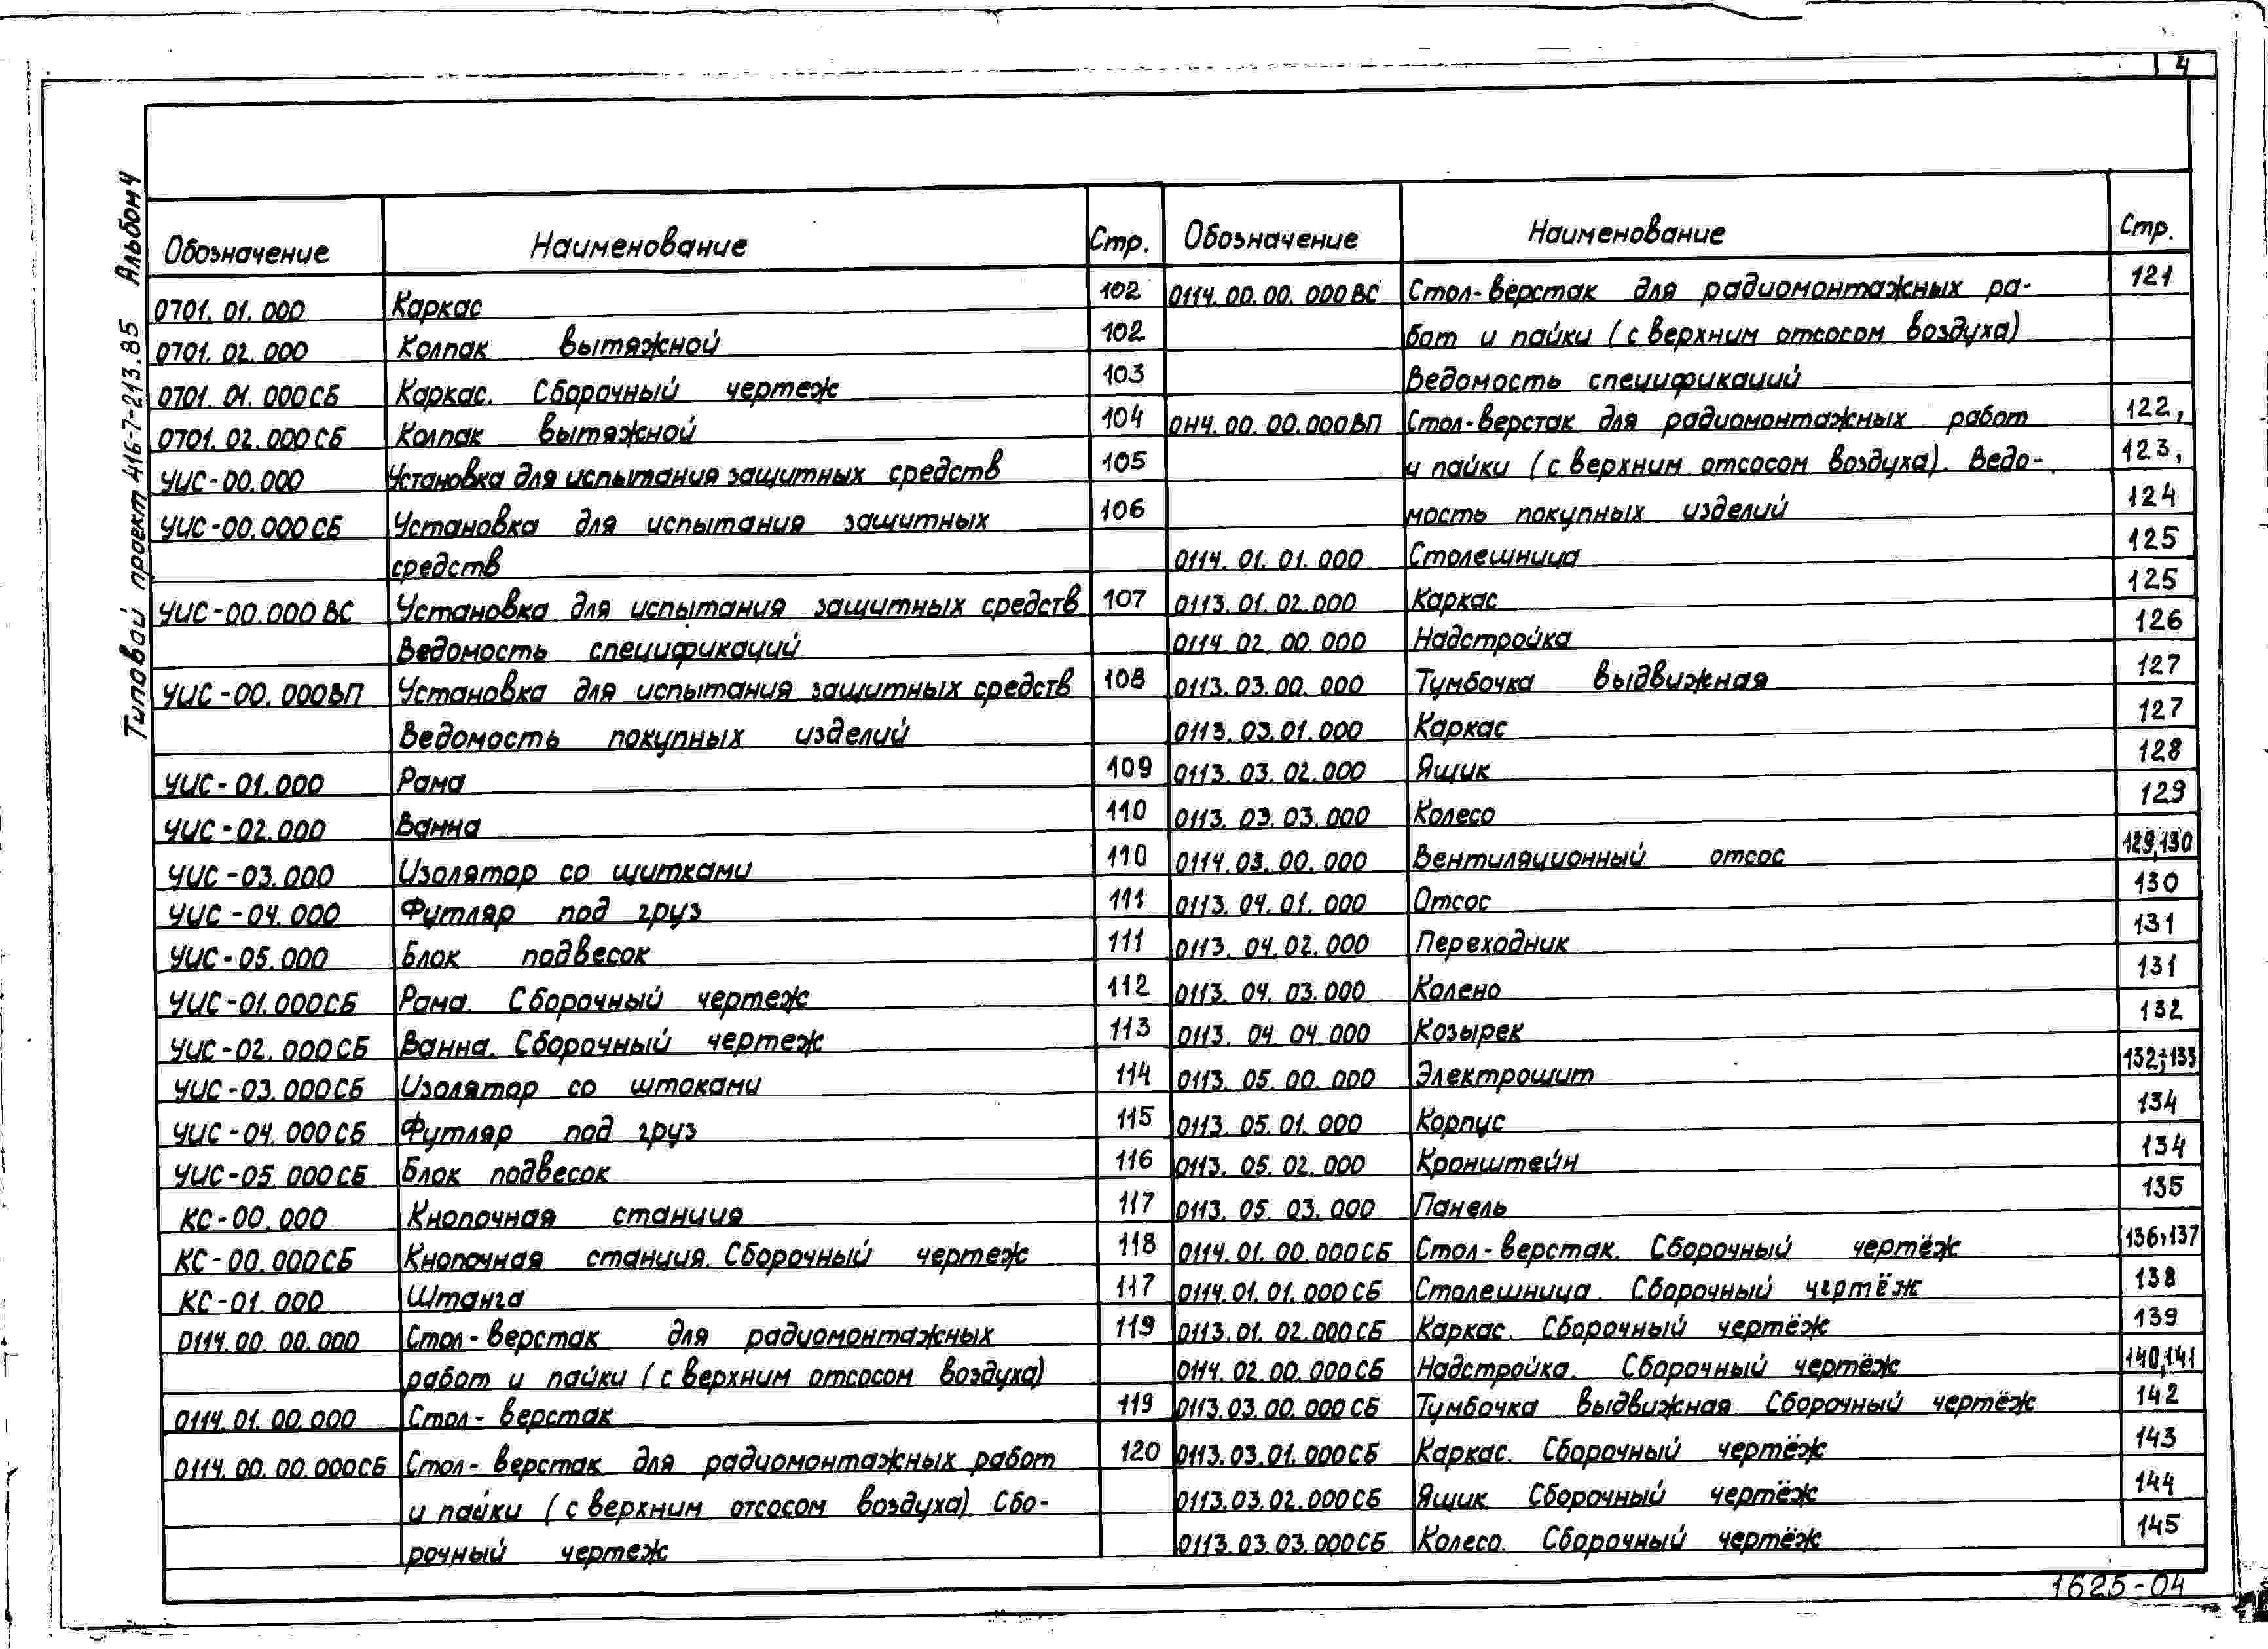 4
Типовой проект 416-7-213.85 Альбом 4
Обозначение Наименование Стр.
0701.01.000 Каркас 102
0701.02.000 Колпак вытяжной 102
0701.01.000СБ Каркас. Сборочный чертеж 103
0701.02.000СБ Колпак вытяжной 104
УИС-00.000 Установка для испытания защитных средств 105
УИС-00.000СБ Установка для испытания защитных 106
средств
УИС-00.000ВС Установка для испытания защитных средств 107
Ведомость спецификаций
УИС-00.000ВП Установка для испытания защитных средств 108
Ведомость покупных изделий
УИС-01.000 Рама 109
УИС-02.000 Ванна 110
УИС-03.000 Изолятор со щитками 110
УИС-04.000 Футляр под груз 111
УИС-05.000 Блок подвесок 111
УИС-01.000СБ Рама. Сборочный чертеж 112
УИС-02.000СБ Ванна. Сборочный чертеж 113
УИС-03.000СБ Изолятор со штоками 114
УИС-04.000СБ Футляр под груз 115
УИС-05.000СБ Блок подвесок 116
КС-00.000 Кнопочная станция 117
КС-00.000СБ Кнопочная станция. Сборочный чертеж 118
КС-01.000 Штанга 117
0114.00.00.000 Стол-верстак для радиомонтажных 119
работ и пайки (с верхним отсосом воздуха)
0114.01.00.000 Стол-верстак 119
0114.00.00.000СБ Стол-верстак для радиомонтажных работ 120
и пайки (с верхним отсосом воздуха) Сбо-
рочный чертеж
Обозначение Наименование Стр.
0114.00.00.000ВС Стол-верстак для радиомонтажных ра- 121
бот и пайки (с верхним отсосом воздуха)
Ведомость спецификаций
0114.00.00.000ВП Стол-верстак для радиомонтажных работ 122,
и пайки (с верхним отсосом воздуха). Ведо- 123,
мость покупных изделий 124
0114.01.01.000 Столешница 125
0113.01.02.000 Каркас 125
0114.02.00.000 Надстройка 126
0113.03.00.000 Тумбочка выдвижная 127
0113.03.01.000 Каркас 127
0113.03.02.000 Ящик 128
0113.03.03.000 Колесо 129
0114.03.00.000 Вентиляционный отсос 129,130
0113.04.01.000 Отсос 130
0113.04.02.000 Переходник 131
0113.04.03.000 Колено 131
0113.04.04.000 Козырек 132
0113.05.00.000 Электрощит 132÷133
0113.05.01.000 Корпус 134
0113.05.02.000 Кронштейн 134
0113.05.03.000 Панель 135
0114.01.00.000СБ Стол-верстак. Сборочный чертёж 136,137
0114.01.01.000СБ Столешница. Сборочный чертёж 138
0113.01.02.000СБ Каркас. Сборочный чертёж 139
0114.02.00.000СБ Надстройка. Сборочный чертёж 140,141
0113.03.00.000СБ Тумбочка выдвижная. Сборочный чертёж 142
0113.03.01.000СБ Каркас. Сборочный чертёж 143
0113.03.02.000СБ Ящик Сборочный чертёж 144
0113.03.03.000СБ Колесо. Сборочный чертёж 145
1625-04